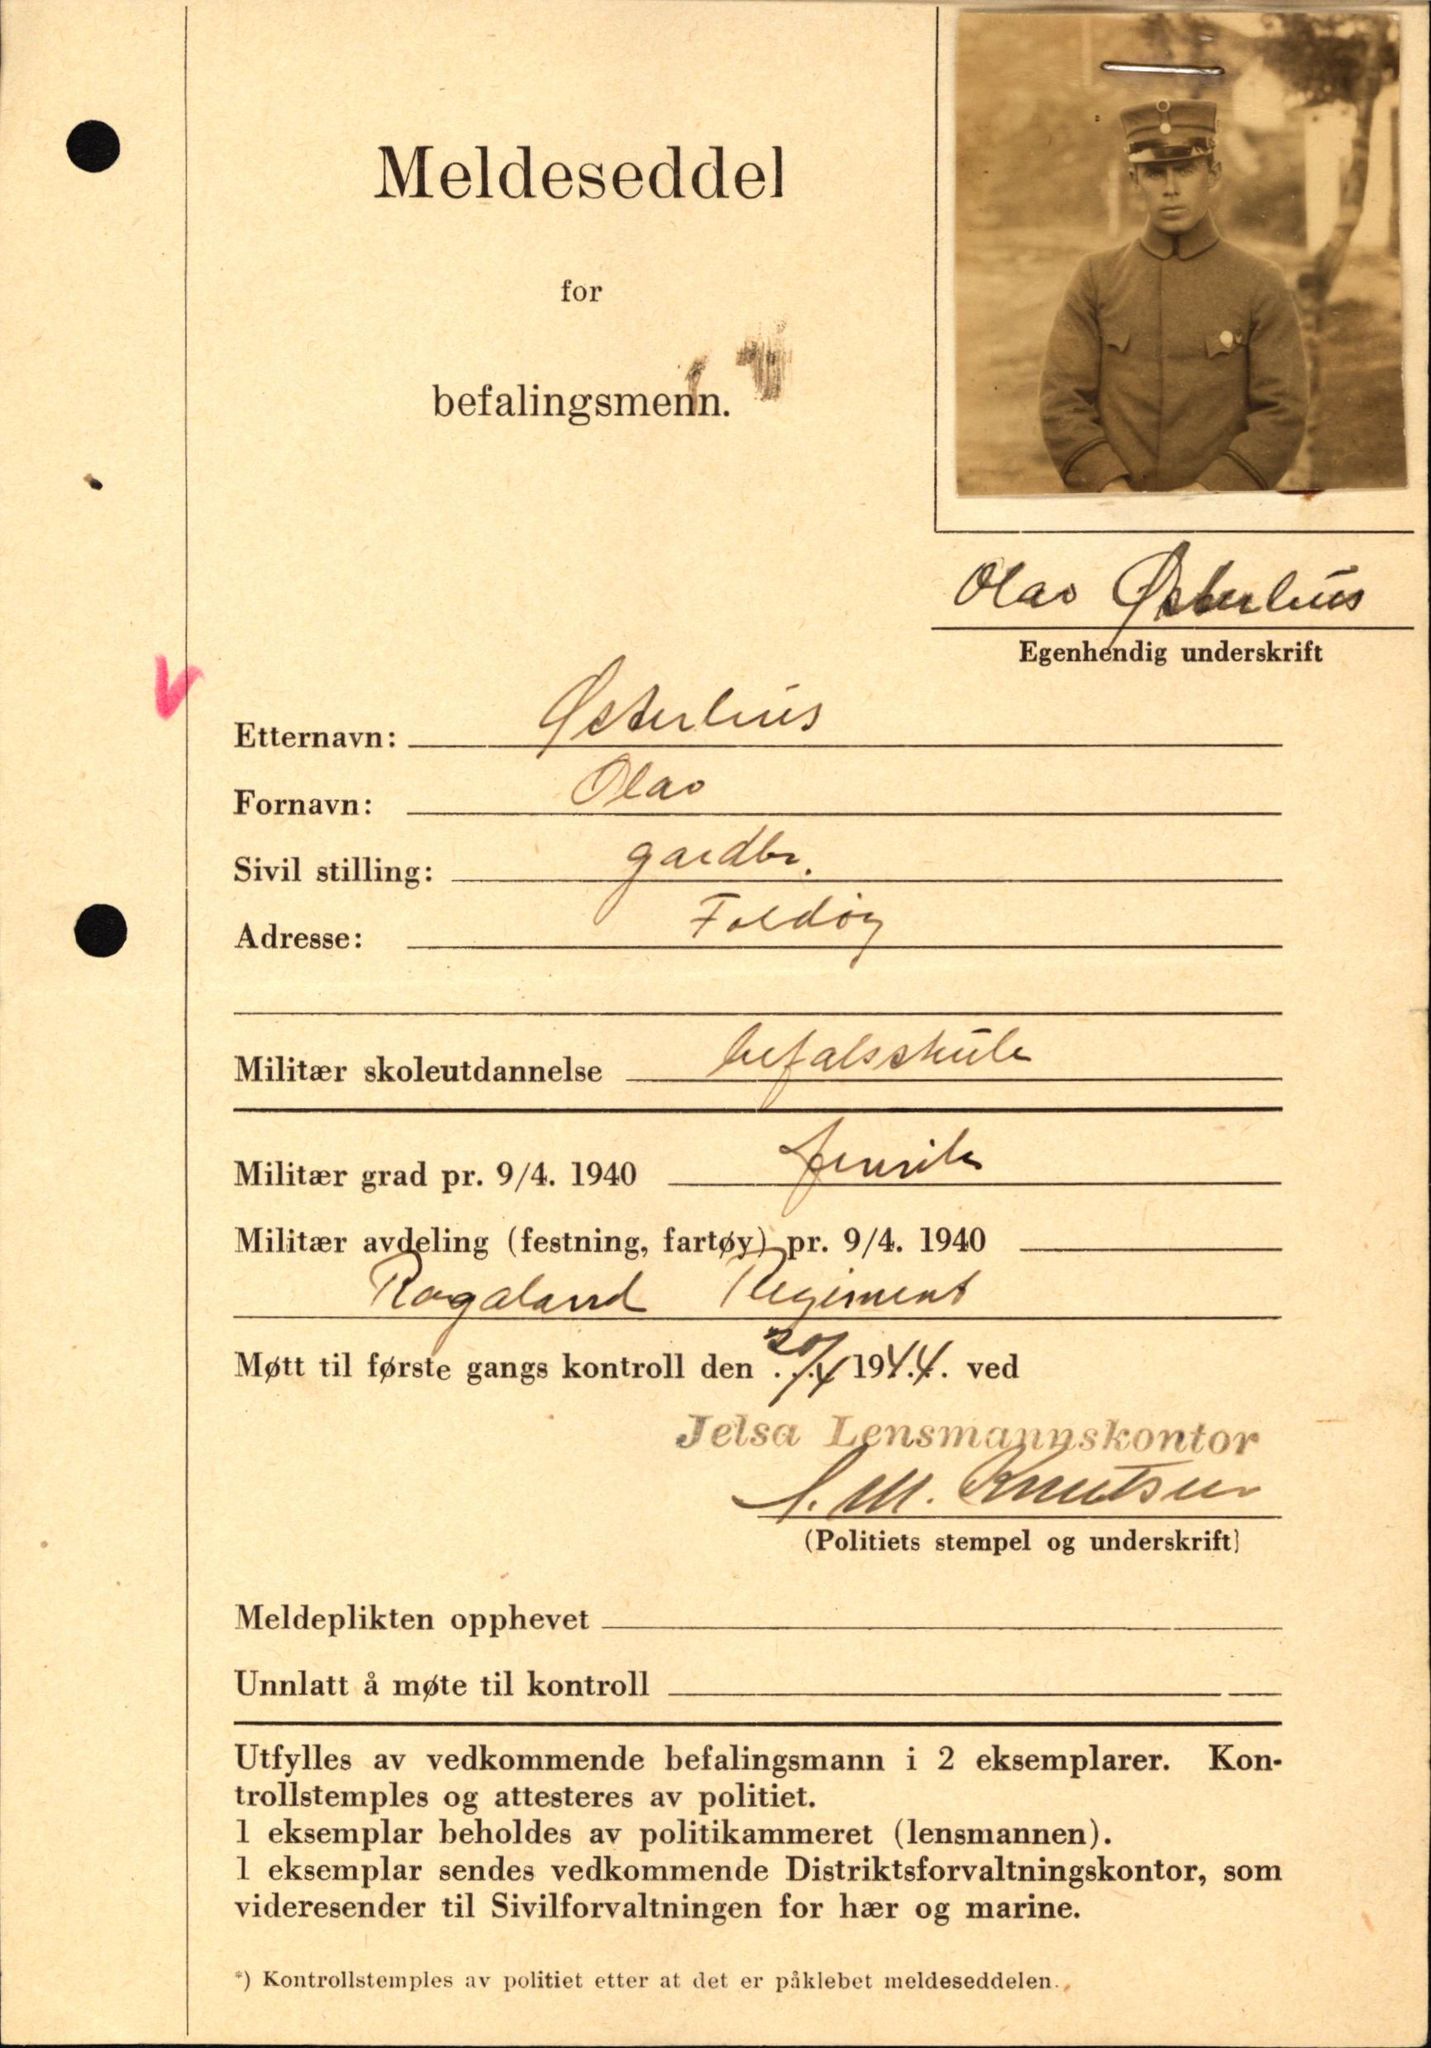 Meldeseddel
for
befalingsmenn.
Olav Østerhus
Egenhendig underskrift
Etternavn: Østerhus
Fornavn: Olav
Sivil stilling: gardbr.
Adresse: Foldøy
Militær skoleutdannelse befalsskule
Militær grad pr. 9/4. 1940 fenrik
Militær avdeling (festning, fartøy) pr. 9/4. 1940
Rogaland Regiment
Møtt til første gangs kontroll den 20/4 1944. ved
Jelsa Lensmannskontor
M. Knutsen
(Politiets stempel og underskrift)
Meldeplikten opphevet
Unnlatt å møte til kontroll
Utfylles av vedkommende befalingsmann i 2 eksemplarer. Kon-
trollstemples og attesteres av politiet.
1 eksemplar beholdes av politikammeret (lensmannen).
1 eksemplar sendes vedkommende Distriktsforvaltningskontor, som
videresender til Sivilforvaltningen for hær og marine.
*) Kontrollstemples av politiet etter at det er påklebet meldeseddelen.